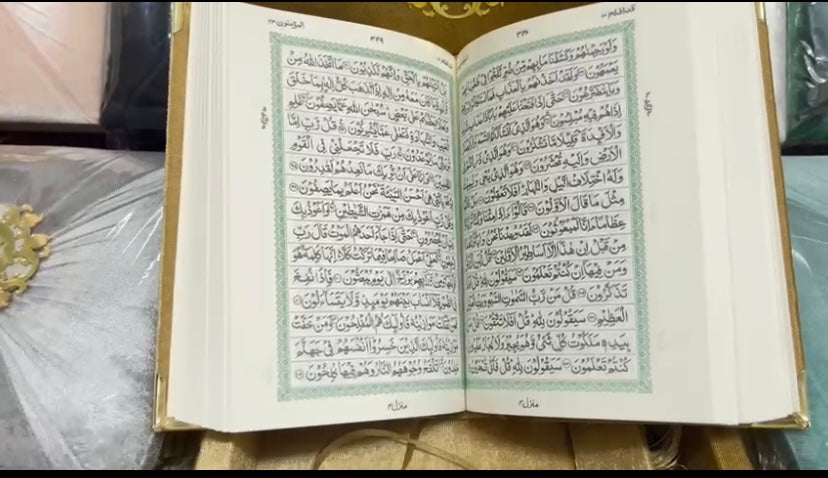 قدافلح ١٨
٣٤٨
وَلَوْ رَحِمْنٰهُمْ وَكَشَفْنَا مَا بِهِمْ مِّنْ ضُرٍّ لَّلَجُّوْا فِيْ
يَعْمَهُوْنَ ۝ وَلَقَدْ اَخَذْنٰهُمْ بِالْعَذَابِ فَمَا اسْتَكَانُوْا
وَمَا يَتَضَرَّعُوْنَ ۝ حَتّٰٓى اِذَا فَتَحْنَا عَلَيْهِمْ بَابًا ذَا عَذَابٍ
اِذَا هُمْ فِيْهِ مُبْلِسُوْنَ ۝ وَهُوَ الَّذِيْٓ اَنْشَاَ لَكُمُ السَّمْعَ
وَالْاَفْـِٕدَةَ قَلِيْلًا مَّا تَشْكُرُوْنَ ۝ وَهُوَ الَّذِيْ ذَرَاَكُمْ
الْاَرْضِ وَاِلَيْهِ تُحْشَرُوْنَ ۝ وَهُوَ الَّذِيْ يُحْيٖ وَ
وَلَهُ اخْتِلَافُ الَّيْلِ وَالنَّهَارِ اَفَلَا تَعْقِلُوْنَ ۝
مِثْلَ مَا قَالَ الْاَوَّلُوْنَ ۝ قَالُوْٓا ءَاِذَا مِتْنَا وَكُنَّا
عِظَامًا ءَاِنَّا لَمَبْعُوْثُوْنَ ۝ لَقَدْ وُعِدْنَا نَحْنُ وَاٰبَآؤُنَا
مِنْ قَبْلُ اِنْ هٰذَآ اِلَّآ اَسَاطِيْرُ الْاَوَّلِيْنَ ۝ قُلْ
وَمَنْ فِيْهَآ اِنْ كُنْتُمْ تَعْلَمُوْنَ ۝ سَيَقُوْلُوْنَ لِلّٰهِ قُلْ
تَذَكَّرُوْنَ ۝ قُلْ مَنْ رَّبُّ السَّمٰوٰتِ السَّبْعِ وَرَبُّ
الْعَظِيْمِ ۝ سَيَقُوْلُوْنَ لِلّٰهِ قُلْ اَفَلَا تَتَّقُوْنَ ۝
بِيَدِهٖ مَلَكُوْتُ كُلِّ شَيْءٍ وَّهُوَ يُجِيْرُ وَلَا يُجَارُ عَلَيْهِ
كُنْتُمْ تَعْلَمُوْنَ ۝ سَيَقُوْلُوْنَ لِلّٰهِ قُلْ فَاَنّٰى تُسْحَرُوْنَ
منزل ٤
٣٤٩
المؤمنون ٢٣
بَلْ اَتَيْنٰهُمْ بِالْحَقِّ وَاِنَّهُمْ لَكٰذِبُوْنَ ۝ مَا اتَّخَذَ اللّٰهُ مِنْ
وَّلَدٍ وَّمَا كَانَ مَعَهٗ مِنْ اِلٰهٍ اِذًا لَّذَهَبَ كُلُّ اِلٰهٍۭ بِمَا خَلَقَ
وَلَعَلَا بَعْضُهُمْ عَلٰى بَعْضٍ سُبْحٰنَ اللّٰهِ عَمَّا يَصِفُوْنَ ۝ عٰلِمِ
الْغَيْبِ وَالشَّهَادَةِ فَتَعٰلٰى عَمَّا يُشْرِكُوْنَ ۝ قُلْ رَّبِّ اِمَّا
تُرِيَنِّيْ مَا يُوْعَدُوْنَ ۝ رَبِّ فَلَا تَجْعَلْنِيْ فِي الْقَوْمِ
الظّٰلِمِيْنَ ۝ وَاِنَّا عَلٰٓى اَنْ نُّرِيَكَ مَا نَعِدُهُمْ لَقٰدِرُوْنَ ۝
اِدْفَعْ بِالَّتِيْ هِيَ اَحْسَنُ السَّيِّئَةَ نَحْنُ اَعْلَمُ بِمَا يَصِفُوْنَ ۝
وَقُلْ رَّبِّ اَعُوْذُ بِكَ مِنْ هَمَزٰتِ الشَّيٰطِيْنِ ۝ وَاَعُوْذُ بِكَ
رَبِّ اَنْ يَّحْضُرُوْنِ ۝ حَتّٰٓى اِذَا جَآءَ اَحَدَهُمُ الْمَوْتُ قَالَ رَبِّ
ارْجِعُوْنِ ۝ لَعَلِّيْٓ اَعْمَلُ صَالِحًا فِيْمَا تَرَكْتُ كَلَّا اِنَّهَا كَلِمَةٌ هُوَ
قَآئِلُهَا وَمِنْ وَّرَآئِهِمْ بَرْزَخٌ اِلٰى يَوْمِ يُبْعَثُوْنَ ۝ فَاِذَا نُفِخَ
فِي الصُّوْرِ فَلَآ اَنْسَابَ بَيْنَهُمْ يَوْمَئِذٍ وَّلَا يَتَسَآءَلُوْنَ ۝
فَمَنْ ثَقُلَتْ مَوَازِيْنُهٗ فَاُولٰٓئِكَ هُمُ الْمُفْلِحُوْنَ ۝ وَمَنْ خَفَّتْ
مَوَازِيْنُهٗ فَاُولٰٓئِكَ الَّذِيْنَ خَسِرُوْٓا اَنْفُسَهُمْ فِيْ جَهَنَّمَ
خٰلِدُوْنَ ۝ تَلْفَحُ وُجُوْهَهُمُ النَّارُ وَهُمْ فِيْهَا كٰلِحُوْنَ ۝
منزل ٤